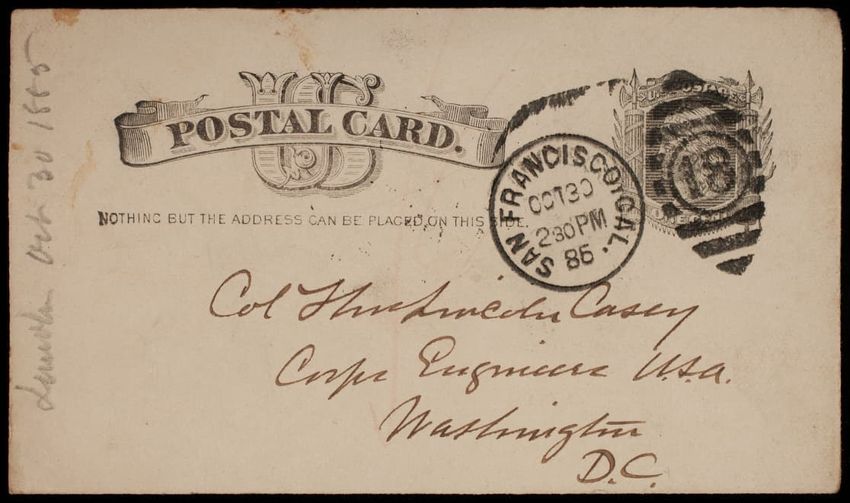 US
POSTAL CARD.
NOTHING BUT THE ADDRESS CAN BE PLACED ON THIS SIDE.
U.S. POSTAGE
18
SAN FRANCISCO, CAL.
OCT 30
2 30 PM
85
Col Thos Lincoln Casey
Corps Engineers U.S.A.
Washington
D.C.
Oct 30 1885